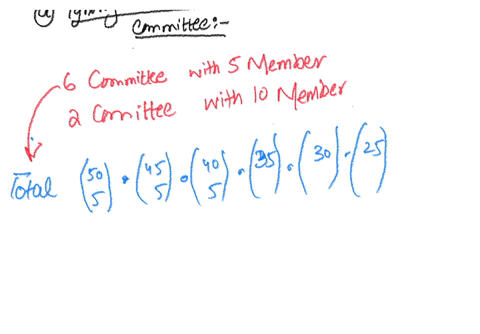 Committee:-
6 Committee with 5 Member
2 Comittee with 10 Member
Total (50 5) • (45 5) • (40 5) • (35) • (30) • (25)